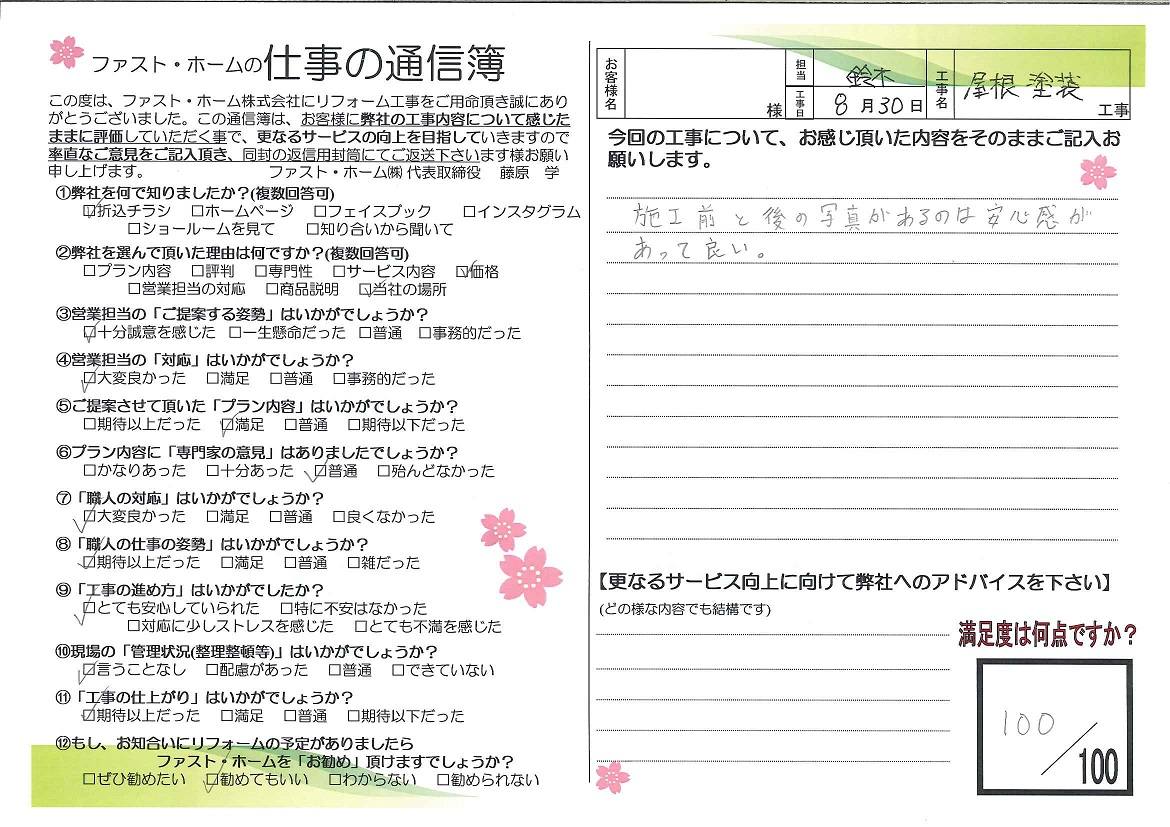 ファスト・ホームの仕事の通信簿
この度は、ファスト・ホーム株式会社にリフォーム工事をご用命頂き誠にあり
がとうございました。この通信簿は、お客様に弊社の工事内容について感じた
ままに評価していただく事で、更なるサービスの向上を目指していきますので
率直なご意見をご記入頂き、同封の返信用封筒にてご返送下さいます様お願い
申し上げます。 ファスト・ホーム㈱ 代表取締役 藤原 学
①弊社を何で知りましたか？(複数回答可)
☑折込チラシ □ホームページ □フェイスブック □インスタグラム
□ショールームを見て □知り合いから聞いて
②弊社を選んで頂いた理由は何ですか？(複数回答可)
□プラン内容 □評判 □専門性 □サービス内容 ☑価格
□営業担当の対応 □商品説明 ☑当社の場所
③営業担当の「ご提案する姿勢」はいかがでしょうか？
☑十分誠意を感じた □一生懸命だった □普通 □事務的だった
④営業担当の「対応」はいかがでしょうか？
☑大変良かった □満足 □普通 □事務的だった
⑤ご提案させて頂いた「プラン内容」はいかがでしょうか？
□期待以上だった ☑満足 □普通 □期待以下だった
⑥プラン内容に「専門家の意見」はありましたでしょうか？
□かなりあった □十分あった ☑普通 □殆んどなかった
⑦「職人の対応」はいかがでしょうか？
☑大変良かった □満足 □普通 □良くなかった
⑧「職人の仕事の姿勢」はいかがでしょうか？
☑期待以上だった □満足 □普通 □雑だった
⑨「工事の進め方」はいかがでしたか？
☑とても安心していられた □特に不安はなかった
□対応に少しストレスを感じた □とても不満を感じた
⑩現場の「管理状況(整理整頓等)」はいかがでしょうか？
☑言うことなし □配慮があった □普通 □できていない
⑪「工事の仕上がり」はいかがでしょうか？
☑期待以上だった □満足 □普通 □期待以下だった
⑫もし、お知合いにリフォームの予定がありましたら
ファスト・ホームを「お勧め」頂けますでしょうか？
□ぜひ勧めたい ☑勧めてもいい □わからない □勧められない
お客様名 様 担当 鈴木 工事日 8月30日 工事名 屋根塗装 工事
今回の工事について、お感じ頂いた内容をそのままご記入お
願いします。
施工前と後の写真があるのは安心感が
あって良い。
【更なるサービス向上に向けて弊社へのアドバイスを下さい】
(どの様な内容でも結構です)
満足度は何点ですか？
100／100